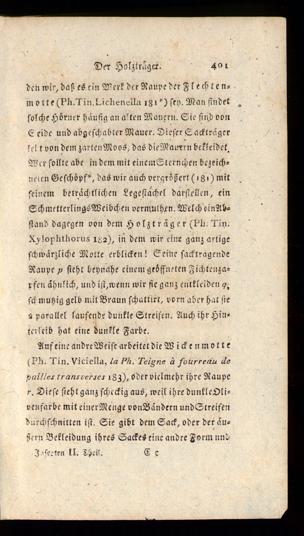 Der Holzträger. 401
den wir, daß es ein Werk der Raupe der Flechten-
motte (Ph. Tin. Lichenella 181*) sey. Man findet
solche Hörner häufig an alten Mauern. Sie sind von
Erde und abgeschabter Mauer. Dieser Sackträger
lebt von dem zarten Moos, das die Mauern bekleidet.
Wer sollte aber in dem mit einem Sternchen bezeich-
neten Geschöpf*, das wir auch vergrößert (181) mit
seinem beträchtlichen Legestachel darstellen, ein
Schmetterlings Weibchen vermuthen. Welch ein Ab-
stand dagegen von dem Holzträger (Ph. Tin.
Xylophthorus 182), in dem wir eine ganz artige
schwärzliche Motte erblicken! Seine sacktragende
Raupe p sieht beynahe einem geöffneten Fichtenza-
pfen ähnlich, und ist, wenn wir sie ganz entkleiden q,
schmutzig gelb mit Braun schattirt, vorn aber hat sie
2 parallel laufende dunkle Streifen. Auch ihr Hin-
terleib hat eine dunkle Farbe.
Auf eine andre Weise arbeitet die Wickenmotte
(Ph. Tin. Viciella, la Ph. Teigne à fourreau de
pailles transverses 183), oder vielmehr ihre Raupe
r. Diese sieht ganz scheckig aus, weil ihre dunkle Oli-
venfarbe mit einer Menge von Bändern und Streifen
durchschnitten ist. Sie gibt dem Sack, oder der äu-
ßern Bekleidung ihres Sackes eine andre Form und
Insecten II. Theil. C c